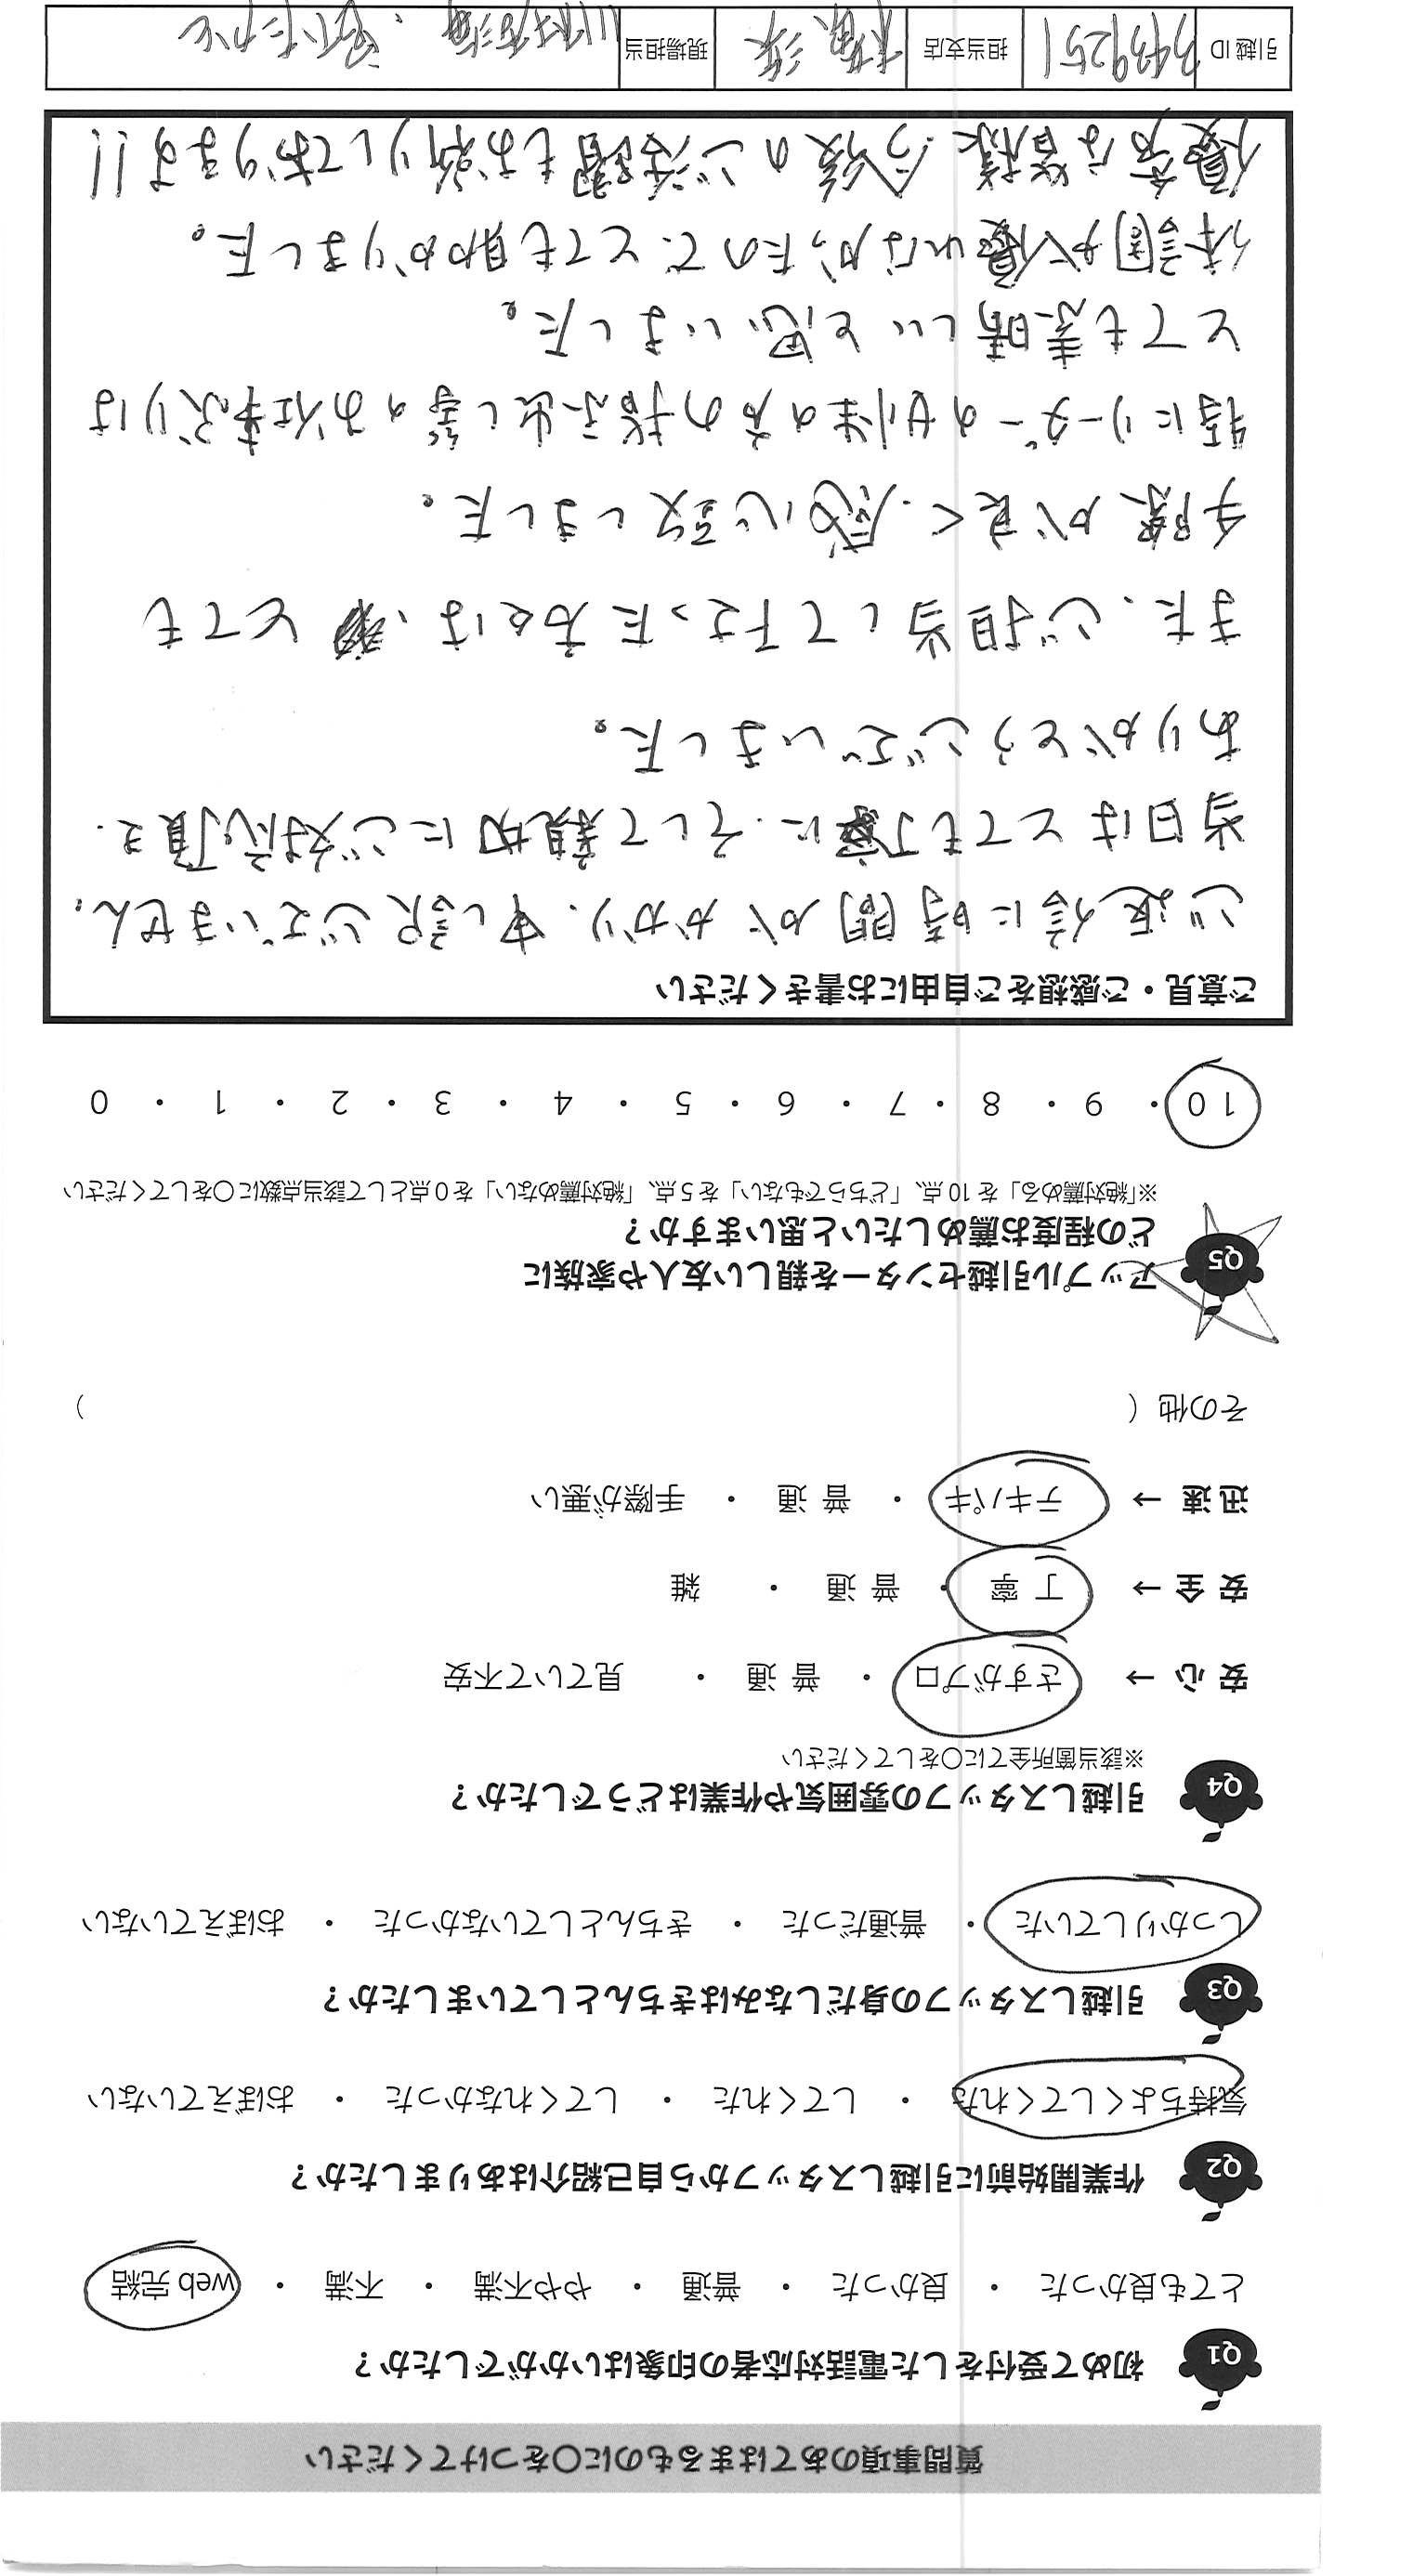 質問事項のあてはまるものに○をつけてください
Q1 初めて受付をした電話対応者の印象はいかがでしたか？
とても良かった ・ 良かった ・ 普通 ・ やや不満 ・ 不満 ・ web 完結
Q2 作業開始前に引越しスタッフから自己紹介はありましたか？
気持ちよくしてくれた ・ してくれた ・ してくれなかった ・ おぼえていない
Q3 引越しスタッフの身だしなみはきちんとしていましたか？
しっかりしていた ・ 普通だった ・ きちんとしていなかった ・ おぼえていない
Q4 引越しスタッフの雰囲気や作業はどうでしたか？
※該当箇所全てに○をしてください
安 心 → さすがプロ ・ 普 通 ・ 見ていて不安
安 全 → 丁 寧 ・ 普 通 ・ 雑
迅 速 → テキパキ ・ 普 通 ・ 手際が悪い
その他（ ）
Q5 アップル引越センターを親しい友人や家族に
どの程度お薦めしたいと思いますか？
※「絶対薦める」を 10 点、「どちらでもない」を 5 点、「絶対薦めない」を 0 点として該当点数に○をしてください
10 ・ 9 ・ 8 ・ 7 ・ 6 ・ 5 ・ 4 ・ 3 ・ 2 ・ 1 ・ 0
ご意見・ご感想をご自由にお書きください
ご返信に時間がかかり、申し訳ございません。
当日はとても丁寧に、そして親切にご対応頂き、
ありがとうございました。
また、ご担当して下さった方々は、とても
手際が良く、感心致しました。
特にリーダーの女性の方の指示出し等のお仕事ぶりは
とても素晴しいと思いました。
体調が優れなかったので、とても助かりました。
優秀な皆様、今後のご活躍もお祈りしております!!
引越 ID 3439251 担当支店 横浜 現場担当